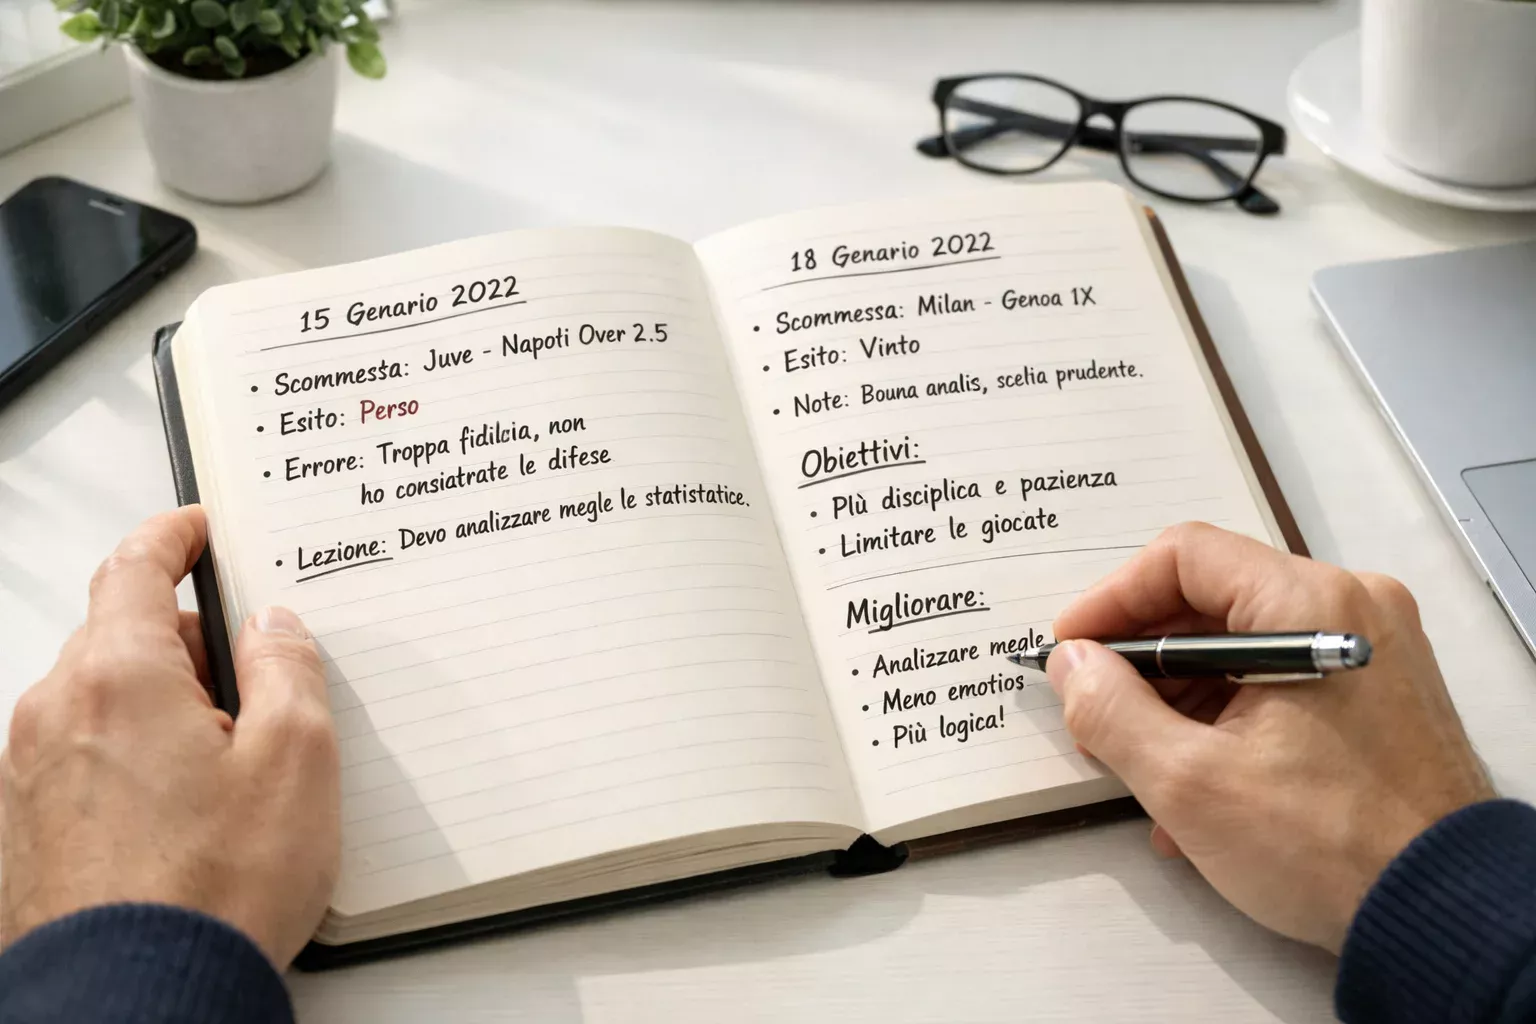 15 Genario 2022
• Scommesta: Juve - Napoti Over 2.5
• Esito: Perso
• Errore: Troppa fidilcia, non
ho consiatrate le difese
• Lezione: Devo analizzare megle le statistatice.
18 Genario 2022
• Scommessa: Milan - Genoa 1X
• Esito: Vinto
• Note: Bouna analis, scelia prudente.
Obiettivi:
• Plù disciplica e pazienza
• Limitare le giocate
Migliorare:
• Analizzare megle
• Meno emotios
• Più logica!